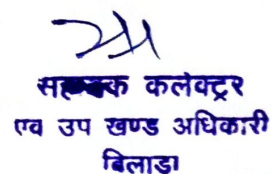 सहायक कलेक्टर
एव उप खण्ड अधिकारी
बिलाडा